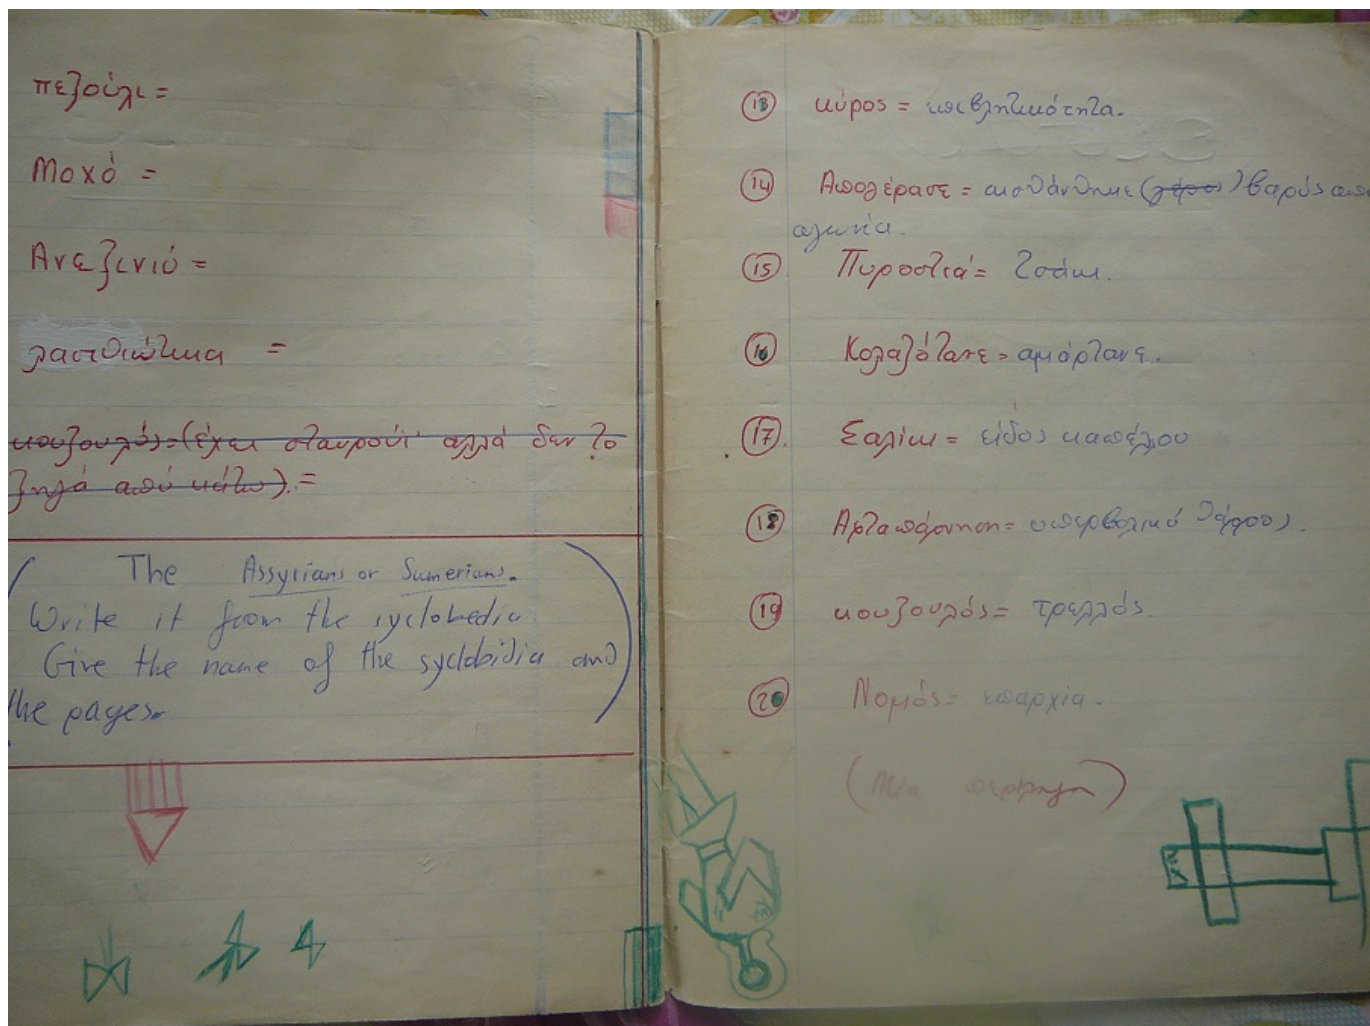 πεζούλι =
Μοχό =
Ανεζινιό =
λασιθιώτικα =
κουζουλός=(έχει σταυρούι αλλά δεν το
ζηλά από κάτω).=
The Assyrians or Sumerians.
Write it from the syclobedia.
Give the name of the syclobidia and
the pages.
13 κύρος =
14 Απολέρασε = αισθάνθηκε () βαρύς απο
αγωνία.
15 Πυροστιά = τσάκι.
16 Κολαζότανε = αμάρτανε.
17. Σαλίκι = είδος καπέλιου
18 = υπερβολικό
19 κουζουλός = τρελλός.
20 Νομός = επαρχία.
(Μία)